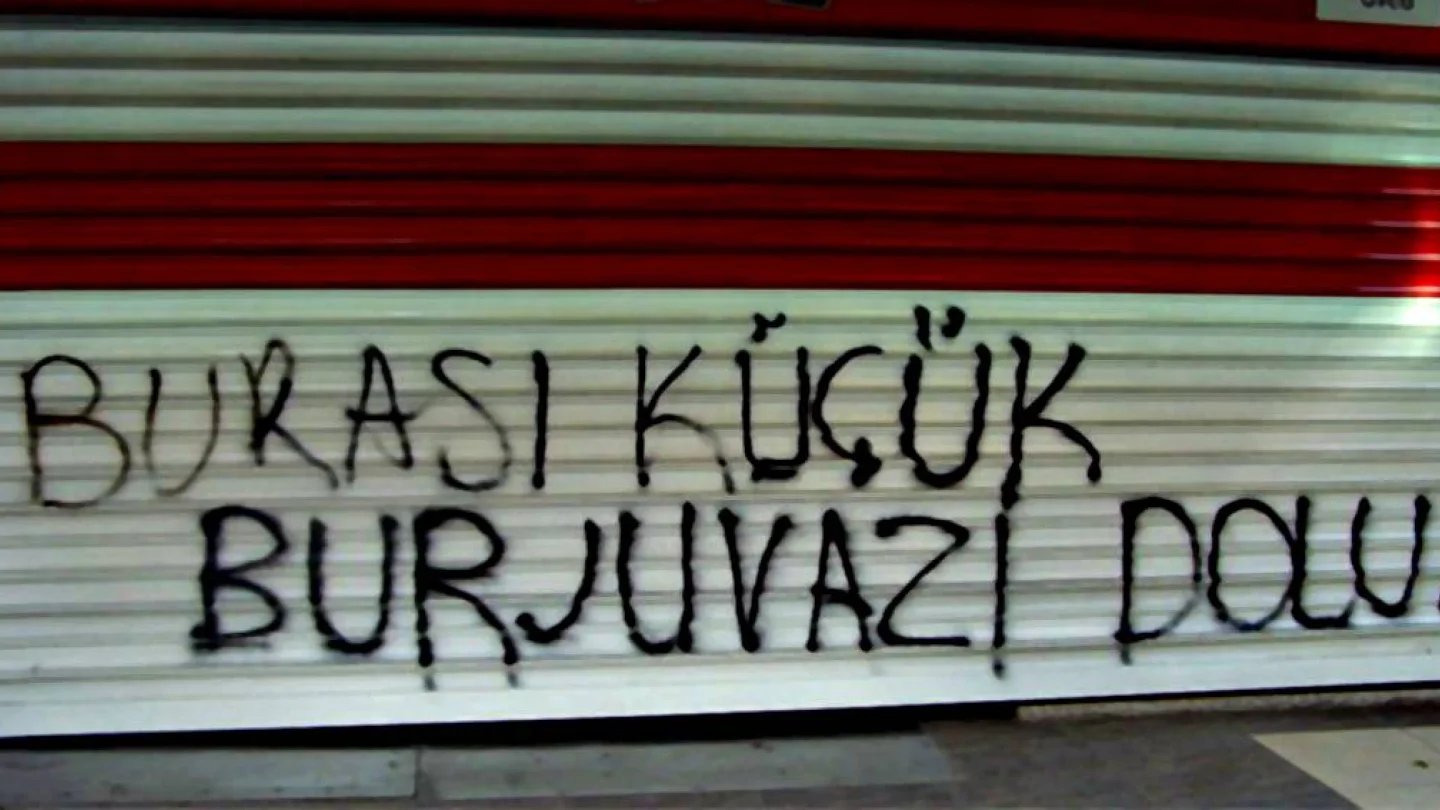 BURASI KÜÇÜK
BURJUVAZİ DOLU